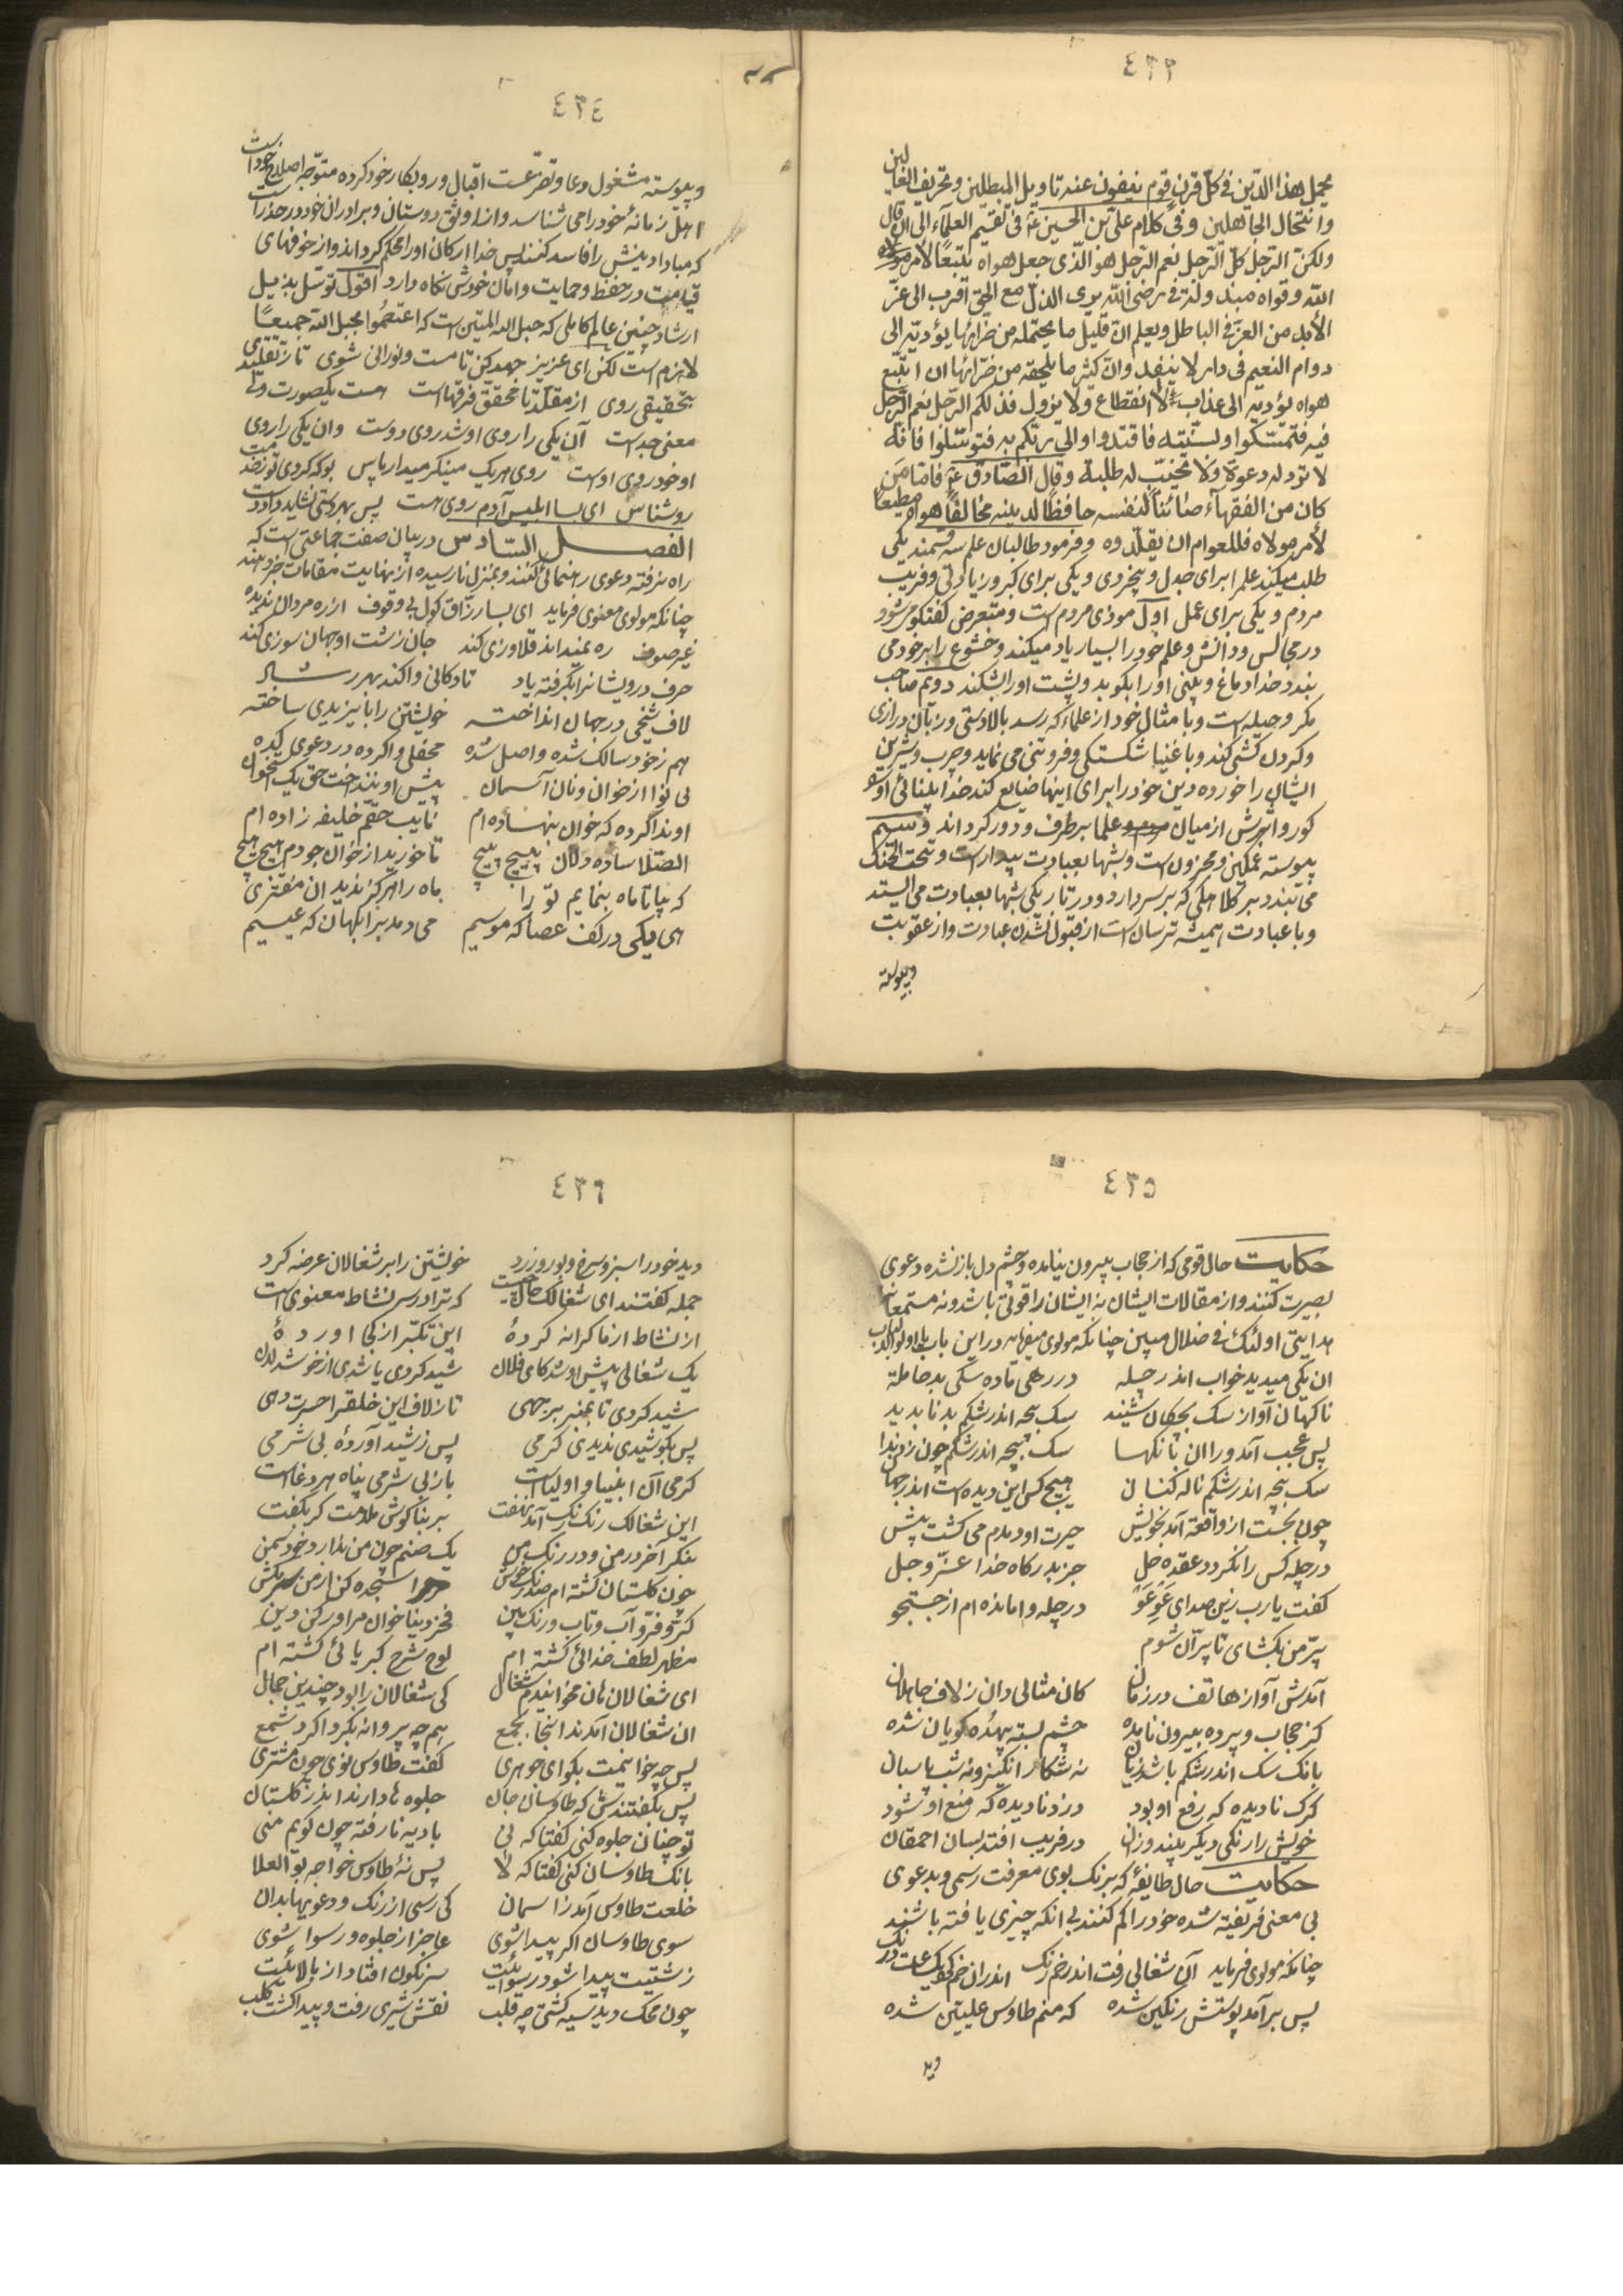 ٤٣٣
يحمل هذا الدّين فى كلّ قرن قوم ينفون عنه تاويل المبطلين و تحريف الغالين
و انتحال الجاهلين و فى كلام على بن الحسين ع فى تقسيم العلمآء الى ان قال
ولكنّ الرّجل كلّ الرّجل نعم الرّجل هو الّذى جعل هواه تبعًا لامر
اللّه و قواه مبذولة فى رضى اللّه يرى الذلّ مع الحق اقرب الى عزّ
الأبد من العزّ فى الباطل و يعلم انّ قليل ما يحتمله من ضرّائها يؤدّيه الى
دوام النعيم فى دار لا ينفد و انّ كثير ما يلحقه من ضرّائها ان اتّبع
هواه يؤدّيه الى عذاب لا انقطاع و لا يزول فذلكم الرّجل نعم الرّجل
فيه فتمسّكوا و بسنّته فاقتدوا و الى ربّكم به فتوسّلوا فانّه
لا تردّ له دعوة و لا يخيّب له طلبة و قال الصّادق ع فامّا من
كان من الفقهآء صائنًا لنفسه حافظًا لدينه مخالفًا هواه مطيعًا
لأمر مولاه فللعوام ان يقلّدوه و فرمود طالبان علم سه قسمند يكى
طلب ميكند علم را براى جدل و بيخردى و يكى براى كبر و زيادتى و فريب
مردم و يكى براى عمل اول موذى مردم است و متعرض گفتگو ميشود
در مجالس و دانش و علم خود را بسيار ياد ميكند و خشوع را بر خود مى
بندد خدا دماغ و بينى او را بكوبد و پشت او را بشكند دوّم صاحب
مكر و حيله است و با مثال خود از علماء كه رسد بالادستى و زبان درازى
و گردن كشى كند و با غنيا شكستگى و فروتنى مى نمايد و چرب و شيرين
ايشان را خورده دين خود را براى اينها ضايع كند خدا بينائى او را
كور و اثرش از ميان علما برطرف و دور گرداند و سيم
پيوسته غمگين و محزون است و شبها بعبادت بيدار است و تحت الحنك
مى بندد بر كلاهى كه بر سر دارد و در تاريكى شبها بعبادت مى ايستد
و با عبادت هميشه ترسان است از قبول نشدن عبادت و از عقوبت
و پيوسته
٤٣٤
و پيوسته مشغول دعا و تضرّعست اقبال و رو بكار خود كرده متوّجه اصلاح خود است
اهل زمانهٔ خود را مى شناسد و از اوثق دوستان و برادران خود در حذر است
كه مبادا دينش را فاسد كنند پس خدا اركان او را محكم گرداند و از خوفهاى
قيامت در حفظ و حمايت و امان خودش نگاه دارد اقول توسّل بذيل
ارشاد چنين عالم كاملى كه حبل اللّه المتين است كه اعتصموا بحبل اللّه جميعًا
لازم است لكن اى عزيز جهد كن تا مست و نورانى شوى تا ز تقليدى
بتحقيقى روى از مقلّد تا محقق فرقهاست هست يكصورت ولى
معنى جداست آن يكى را روى او شد روى دوست وان يكى را روى
او خود روى اوست روى هر يك مينگر ميدار پاس بو كه گردى تو ز خدمت
روشناس اى بسا ابليس آدم روى هست پس بهر دستى نشايد داد دست
الفصل السّادس در بيان صفت جماعتى است كه
راه نرفته دعوى رهنمائى كنند و بمنزل نارسيده از نهايت مقامات خبر دهند
چنانكه مولوى معنوى فرمايد اى بسا رزّاق گول بى وقوف از ره مردان نديده
غير صوف ره نميداند قلاوزى كند جان زشت او جهان سوزى كند
حرف درويشان را بگرفته ياد تا دكانى وا كند بهر
لاف شيخى در جهان انداخته خويشتن را بايزيدى ساخته
هم ز خود سالك شده واصل شده محفلى وا كرده در دعوى كده
بى نوا از خوان و نان آسمان پيش او ننداخت حق يك استخوان
او ندا كرده كه خوان بنهاده ام نايب حقم خليفه زاده ام
الصّلا ساده دلان پيچ پيچ تا خوريد از خوان جودم هيچ هيچ
كه بيا تا ماه بنمايم تو را ماه را هرگز نديد ان مفترى
هى يكى در كف عصا كه موسيم مى دمد بر ابلهان كه عيسيم
٤٣٥
حكايت حال قومى كه از حجاب بيرون نيامده و چشم دل باز نشده دعوى
بصيرت كنند و از مقالات ايشان نه ايشان را قوتى باشد و نه مستمعانرا
هدايتى اولئك فى ضلال مبين چنانكه مولوى ميفرمايد در اين باب يا اولو الالباب
ان يكى ميديد خواب اندر چله در رهى ماده سگى بد حامله
ناگهان آواز سگ بچگان شنيد سگ بچه اندر شكم بد ناپديد
پس عجب آمد ورا ان بانگها سگ بچه اندر شكم چون زد ندا
سگ بچه اندر شكم ناله كنان هيچ كس اين ديده است اندر جهان
چون بجست از واقعه آمد بخويش حيرت او دمبدم مى گشت بيش
در چله كس را نگردد عقده حل جز بدرگاه خدا عزّ و جل
گفت يارب زين صداى عَوعَوَ در چله وامانده ام از جستجو
پرّ من بگشاى تا پرّان شوم
آمدش آواز هاتف در زمان كان مثالى دان ز لاف جاهلان
كز حجاب و پرده بيرون نامده چشم بسته بيهده گويان شده
بانگ سگ اندر شكم باشد زيان نه شكار انگيز و نه شب پاسبان
گرگ ناديده كه رفع او بود دزد ناديده كه منع او شود
خويش را رنگى ديگر بيند و زان در فريب افتد بسان احمقان
حكايت حال طايفهٔ كه برنگ بوى معرفت رسمى و بدعوى
بى معنى فريفته شده خود را گم كنند بى آنكه چيزى يافته باشند
چنانكه مولوى فرمايد آن شغالى رفت اندر خم رنگ اندران خم كرد يك ساعت درنگ
پس برآمد پوستش رنگين شده كه منم طاوس عليين شده
ديد
٤٣٦
ديد خود را سبز و سرخ و بور و زرد خويشتن را بر شغالان عرضه كرد
جمله گفتند اى شغالك حال چيست كه ترا در سر نشاط معنوى است
از نشاط از ما كرانه كردهٔ اين تكبّر از كجا آوردهٔ
يك شغالى پيش او شد كاى فلان شيد كردى يا شدى از خوشدلان
شيد كردى تا بمنبر بر جهى تا ز لاف اين خلق را حسرت دهى
پس بكوشيدى نديدى گرمى پس ز شيد آوردهٔ بى شرمى
گرمى آن انبيا و اولياست باز بى شرمى پناه هر دغاست
اين شغالك رنگ رنگ آمد نهفت بر بناگوش ملامت گر بگفت
بنگر آخر در من و در رنگ من يك صنم چون من ندارد خود شمن
چون گلستان گشته ام صد رنگ خوش مر مرا سجده كن از من سر مكش
كرّ و فرّ و آب و تاب و رنگ بين فخر دنيا خوان مرا و ركن دين
مظهر لطف خدائى گشته ام لوح شرح كبريائى گشته ام
اى شغالان هان مخوانيدم شغال كى شغالان را بود چندين جمال
ان شغالان آمدند انجا بجمع همچه پروانه بگرداگرد شمع
پس چه خوانيمت بگو اى جوهرى گفت طاوس نرى چون مشترى
پس بگفتندش كه طاوسان جان جلوه ها دارند اندر گلستان
تو چنان جلوه كنى گفتا كه نى باديه نارفته چون گويم منى
بانگ طاوسان كنى گفتا كه لا پس نهٔ طاوس خواجه بو العلا
خلعت طاوس آمد ز اسمان كى رسى از رنگ و دعويها بدان
سوى طاوسان اگر پيدا شوى عاجز از جلوه و رسوا شوى
زشتيت پيدا شود رسوائيت سرنگون افتاد از بالائيت
چون محك ديد سيه گشتى چه قلب نقش شيرى رفت و پيدا گشت كلب